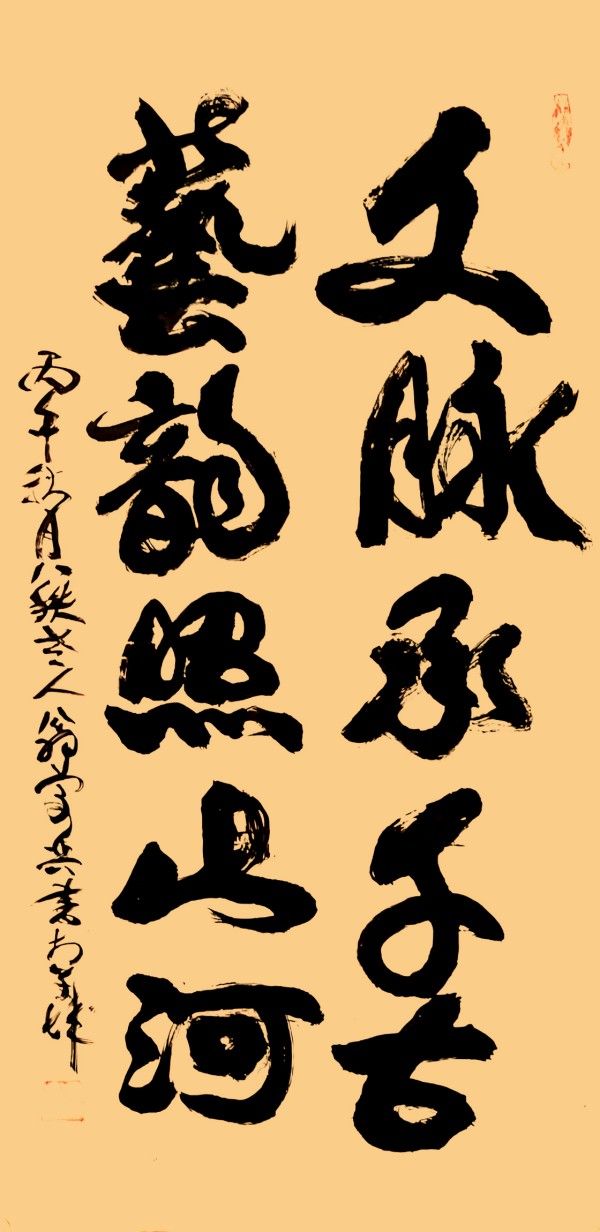 文脉承千古
藝韵照山河
丙午秋月八秩老人翁兵書於城